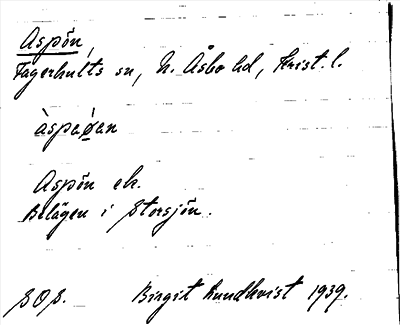 Aspön,
Fagerhults sn, N. Åsbo hd, Krist. l.
àspaø̀an
Aspön ek.
Belägen i Storsjön.
SOS. Birgit Lundkvist 1939.